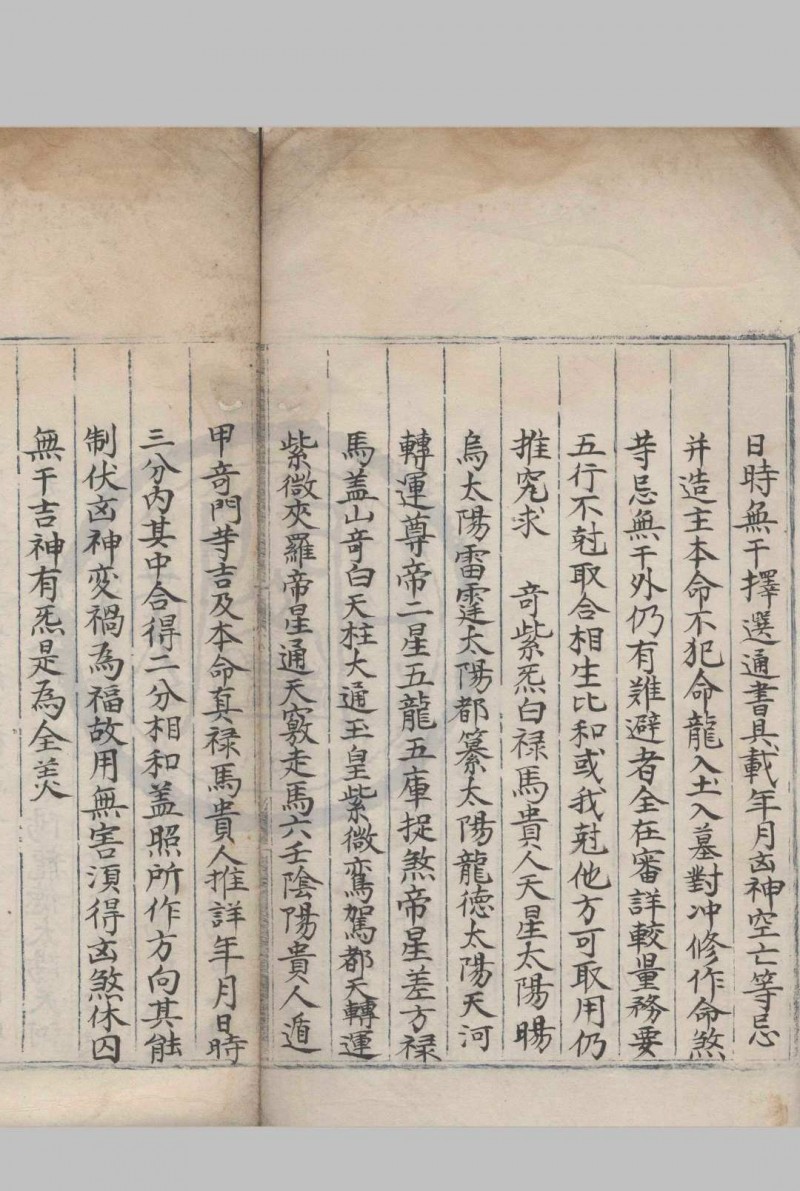 日時無干擇選通書具載年月凶神空亡等忌
并造主本命不犯命龍入土入墓對冲修作命煞
等忌無干外仍有難避者全在審詳較量務要
五行不尅取合相生比和或我尅他方可取用仍
推究求　奇紫炁白禄馬貴人天星太陽暘
烏太陽雷霆太陽都纂太陽龍德太陽天河
轉運尊帝二星五龍五庫捉煞帝星差方禄
馬盖山竒白天柱大通玉皇紫微鸞駕都天轉運
紫微夾羅帝星通天竅走馬六壬陰陽貴人遁
甲竒門等吉及本命真禄馬貴人推詳年月日時
三分內其中合得二分相和盖照所作方向其能
制伏凶神变禍為福故用無害湏得凶煞休囚
無干吉神有炁是為全美